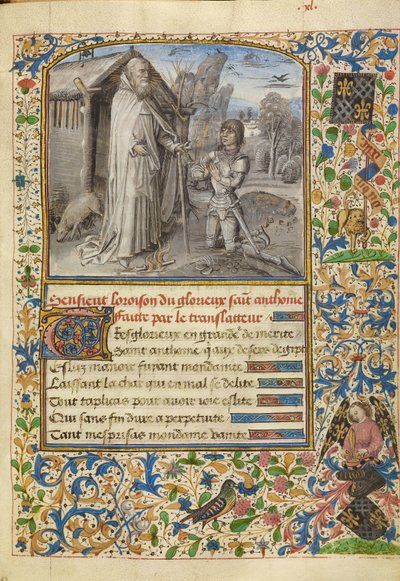 .xl.
Sensieut loroison du glorieux saĩt anthoine
faitte par le translatteur
Tresglorieux en grande de merite
Saint anthoine q̃ aux desers degipte
Eslus manoir fuyant mondanite
Laissant la char qui en mal se delite
Tout tapliquas pour avoir voie eslite
Qui sans fin dure a perpetuite
Tant mesprisas mondaine vanite